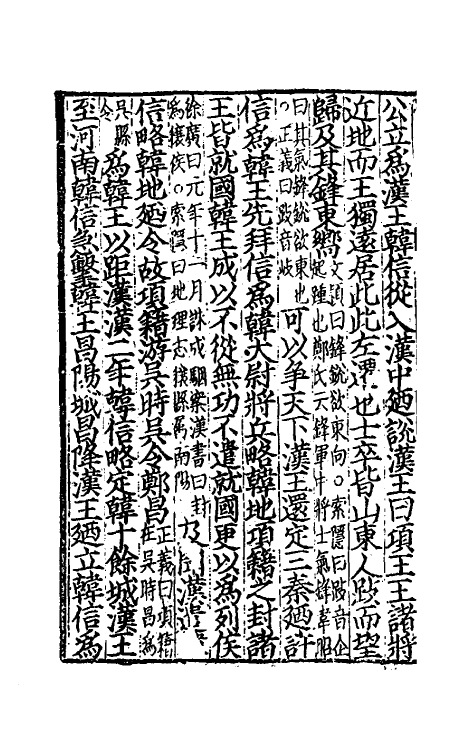 公立為漢王韓信從入漢中廼說漢王曰項王王諸將
近地而王獨遠居此此左遷也士卒皆山東人跂而望
歸及其鋒東嚮文穎曰鋒銳欲東向。索隱曰跂音企
起踵也鄭氏云鋒軍中將士氣鋒韋昭
曰其氣鋒銳欲東也
。正義曰跂音岐
可以爭天下漢王還定三秦廼許
信為韓王先拜信為韓太尉將兵略韓地項籍之封諸
王皆就國韓王成以不從無功不遣就國更以為列侯
徐廣曰元年十一月誅成駰案漢書曰封
為穰侯。索隱曰地理志穰縣屬南陽
及漢
信略韓地廼令故項籍游吳時吳令鄭昌正義曰項籍
在吳時昌為
吳縣
令
為韓王以距漢漢二年韓信略定韓十餘城漢王
至河南韓信急擊韓王昌陽城昌降漢王廼立韓信為